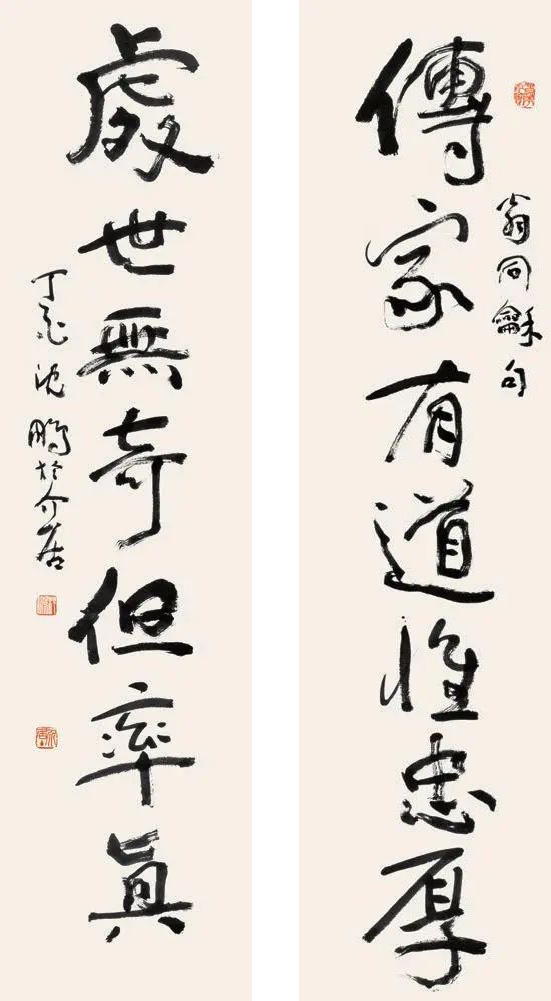 傳家有道惟忠厚
翁同龢句
處世無奇但率真
丁亥沈鵬於介居